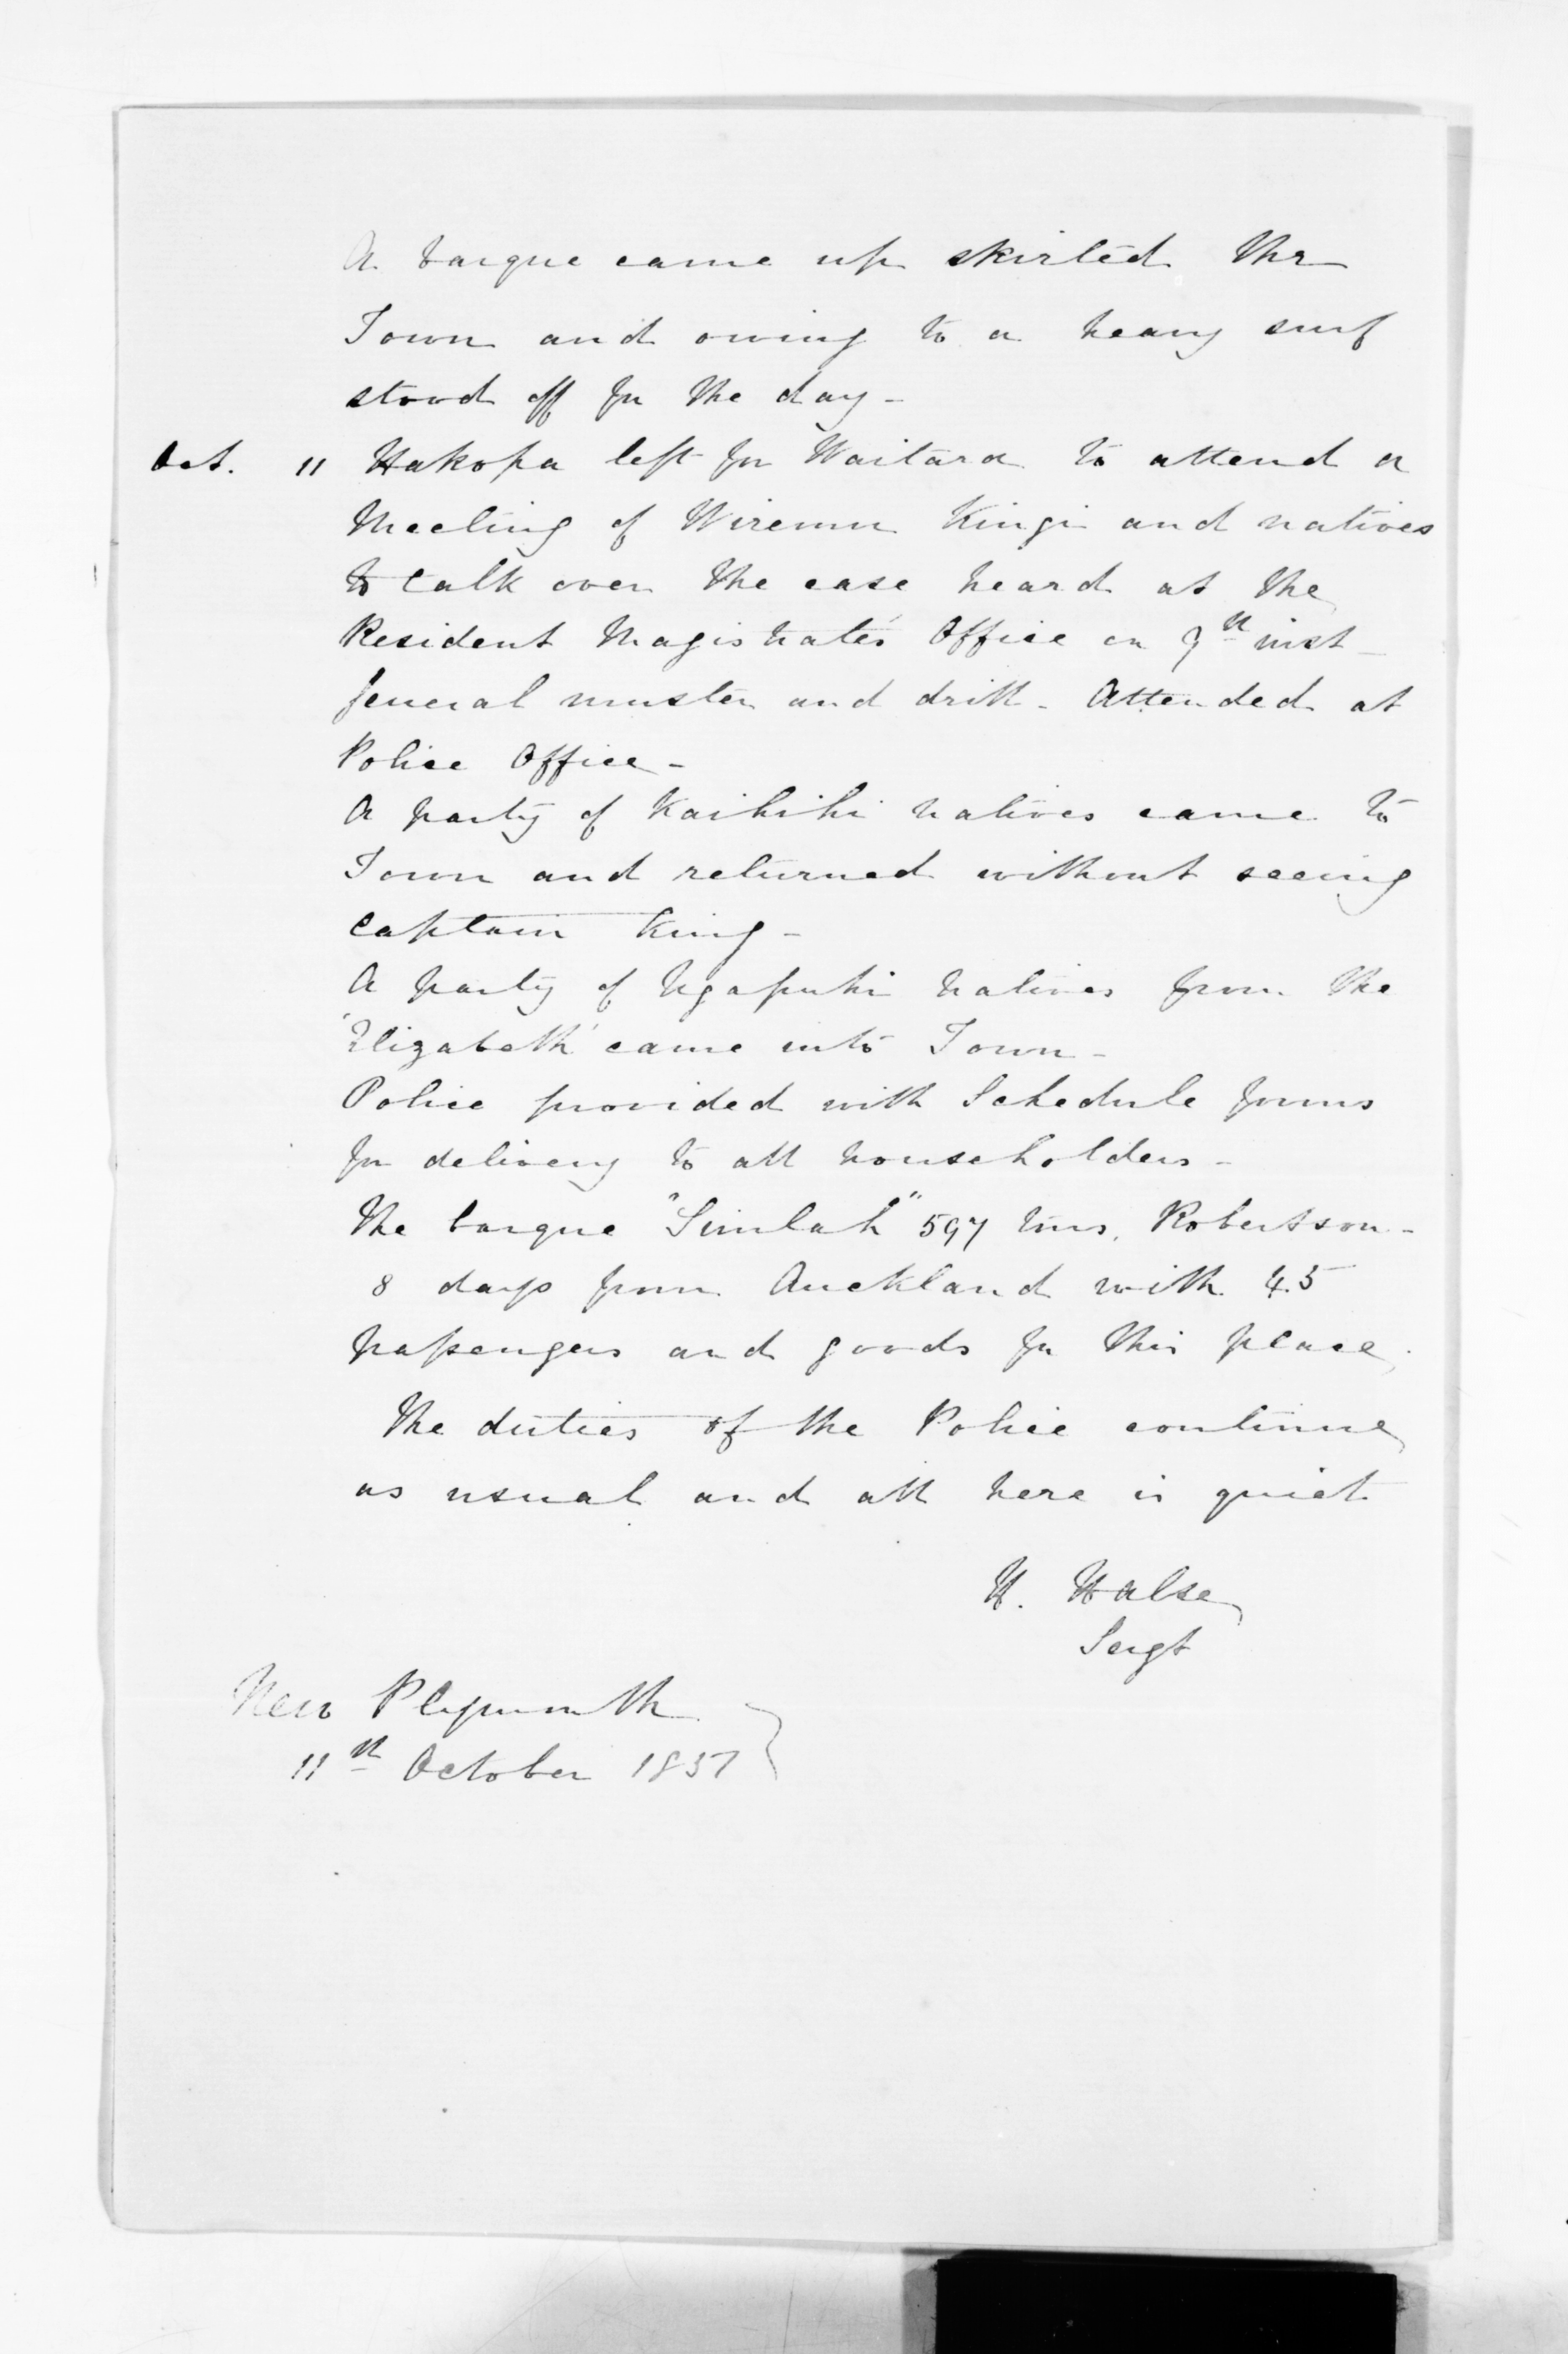 A barque came up skirted the
Town and owing to a heavy surf
stood off for the day -
Oct. 11 Hakopa left for Waitara to attend a
Meeting of Wiremu Kingi and natives
to talk over the case heard at the
Resident Magistrate's Office on 7th inst -
General muster and drill - Attended at
Police Office -
A party of Kaihihi natives came to
Town and returned without seeing
Captain King -
A party of Ngapuhi natives from the
'Elizabeth' came into Town -
Police provided with Schedule forms
for delivery to all householders -
The barque "Simlah" 597 tons, Robertson -
8 days from Auckland with 45
passengers and goods for this place.
The duties of the Police continue
as usual and all here is quiet
H. Halse
Sergt
New Plymouth
11th October 1851